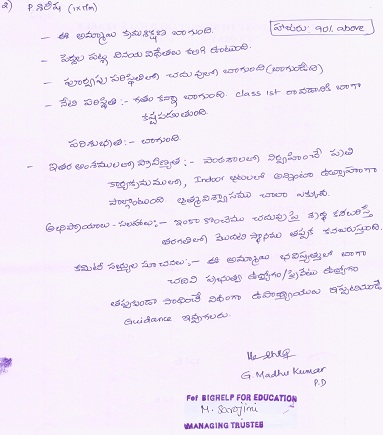 2) P. శిరీష (IX t/m)
హాజరు: 90% above
- ఈ అమ్మాయి క్రమశిక్షణ బాగుంది.
- పెద్దల పట్ల వినయ విధేయతలు కలిగి ఉంటుంది.
- పూర్వపు పరిస్థితిలో చదువులో బాగుంది (బాగుండేది)
- నేటి పరిస్థితి :- గతం కన్నా బాగుంది. class 1st రావడానికి బాగా
కష్టపడుతుంది.
పరిశుభ్రత :- బాగుంది.
- ఇతర అంశములలో ప్రావీణ్యత :- పాఠశాలలో నిర్వహించే ప్రతి
కార్యక్రమములో, Indoor ఆటలలో అన్నింటా ఉత్సాహంగా
పాల్గొంటుంది. ఆత్మవిశ్వాసము చాలా ఎక్కువ.
అభిప్రాయాలు - సలహాలు :- ఇంకా కొంచెము చదువుపై శ్రద్ధ కనబరిస్తే
తరగతిలో మొదటి స్థానము తప్పక కనబరుస్తుంది.
కమిటీ సభ్యుల సూచనలు :- ఈ అమ్మాయి భవిష్యత్తులో బాగా
చదివి ప్రభుత్వ ఉద్యోగం/ప్రైవేటు ఉద్యోగం
తప్పకుండా సాధించే విధంగా ఉపాధ్యాయులు ఇప్పటినుండే
Guidance ఇవ్వగలరు.
G. Madhu Kumar
P.D
For BIGHELP FOR EDUCATION
M. Sarojini
MANAGING TRUSTEE